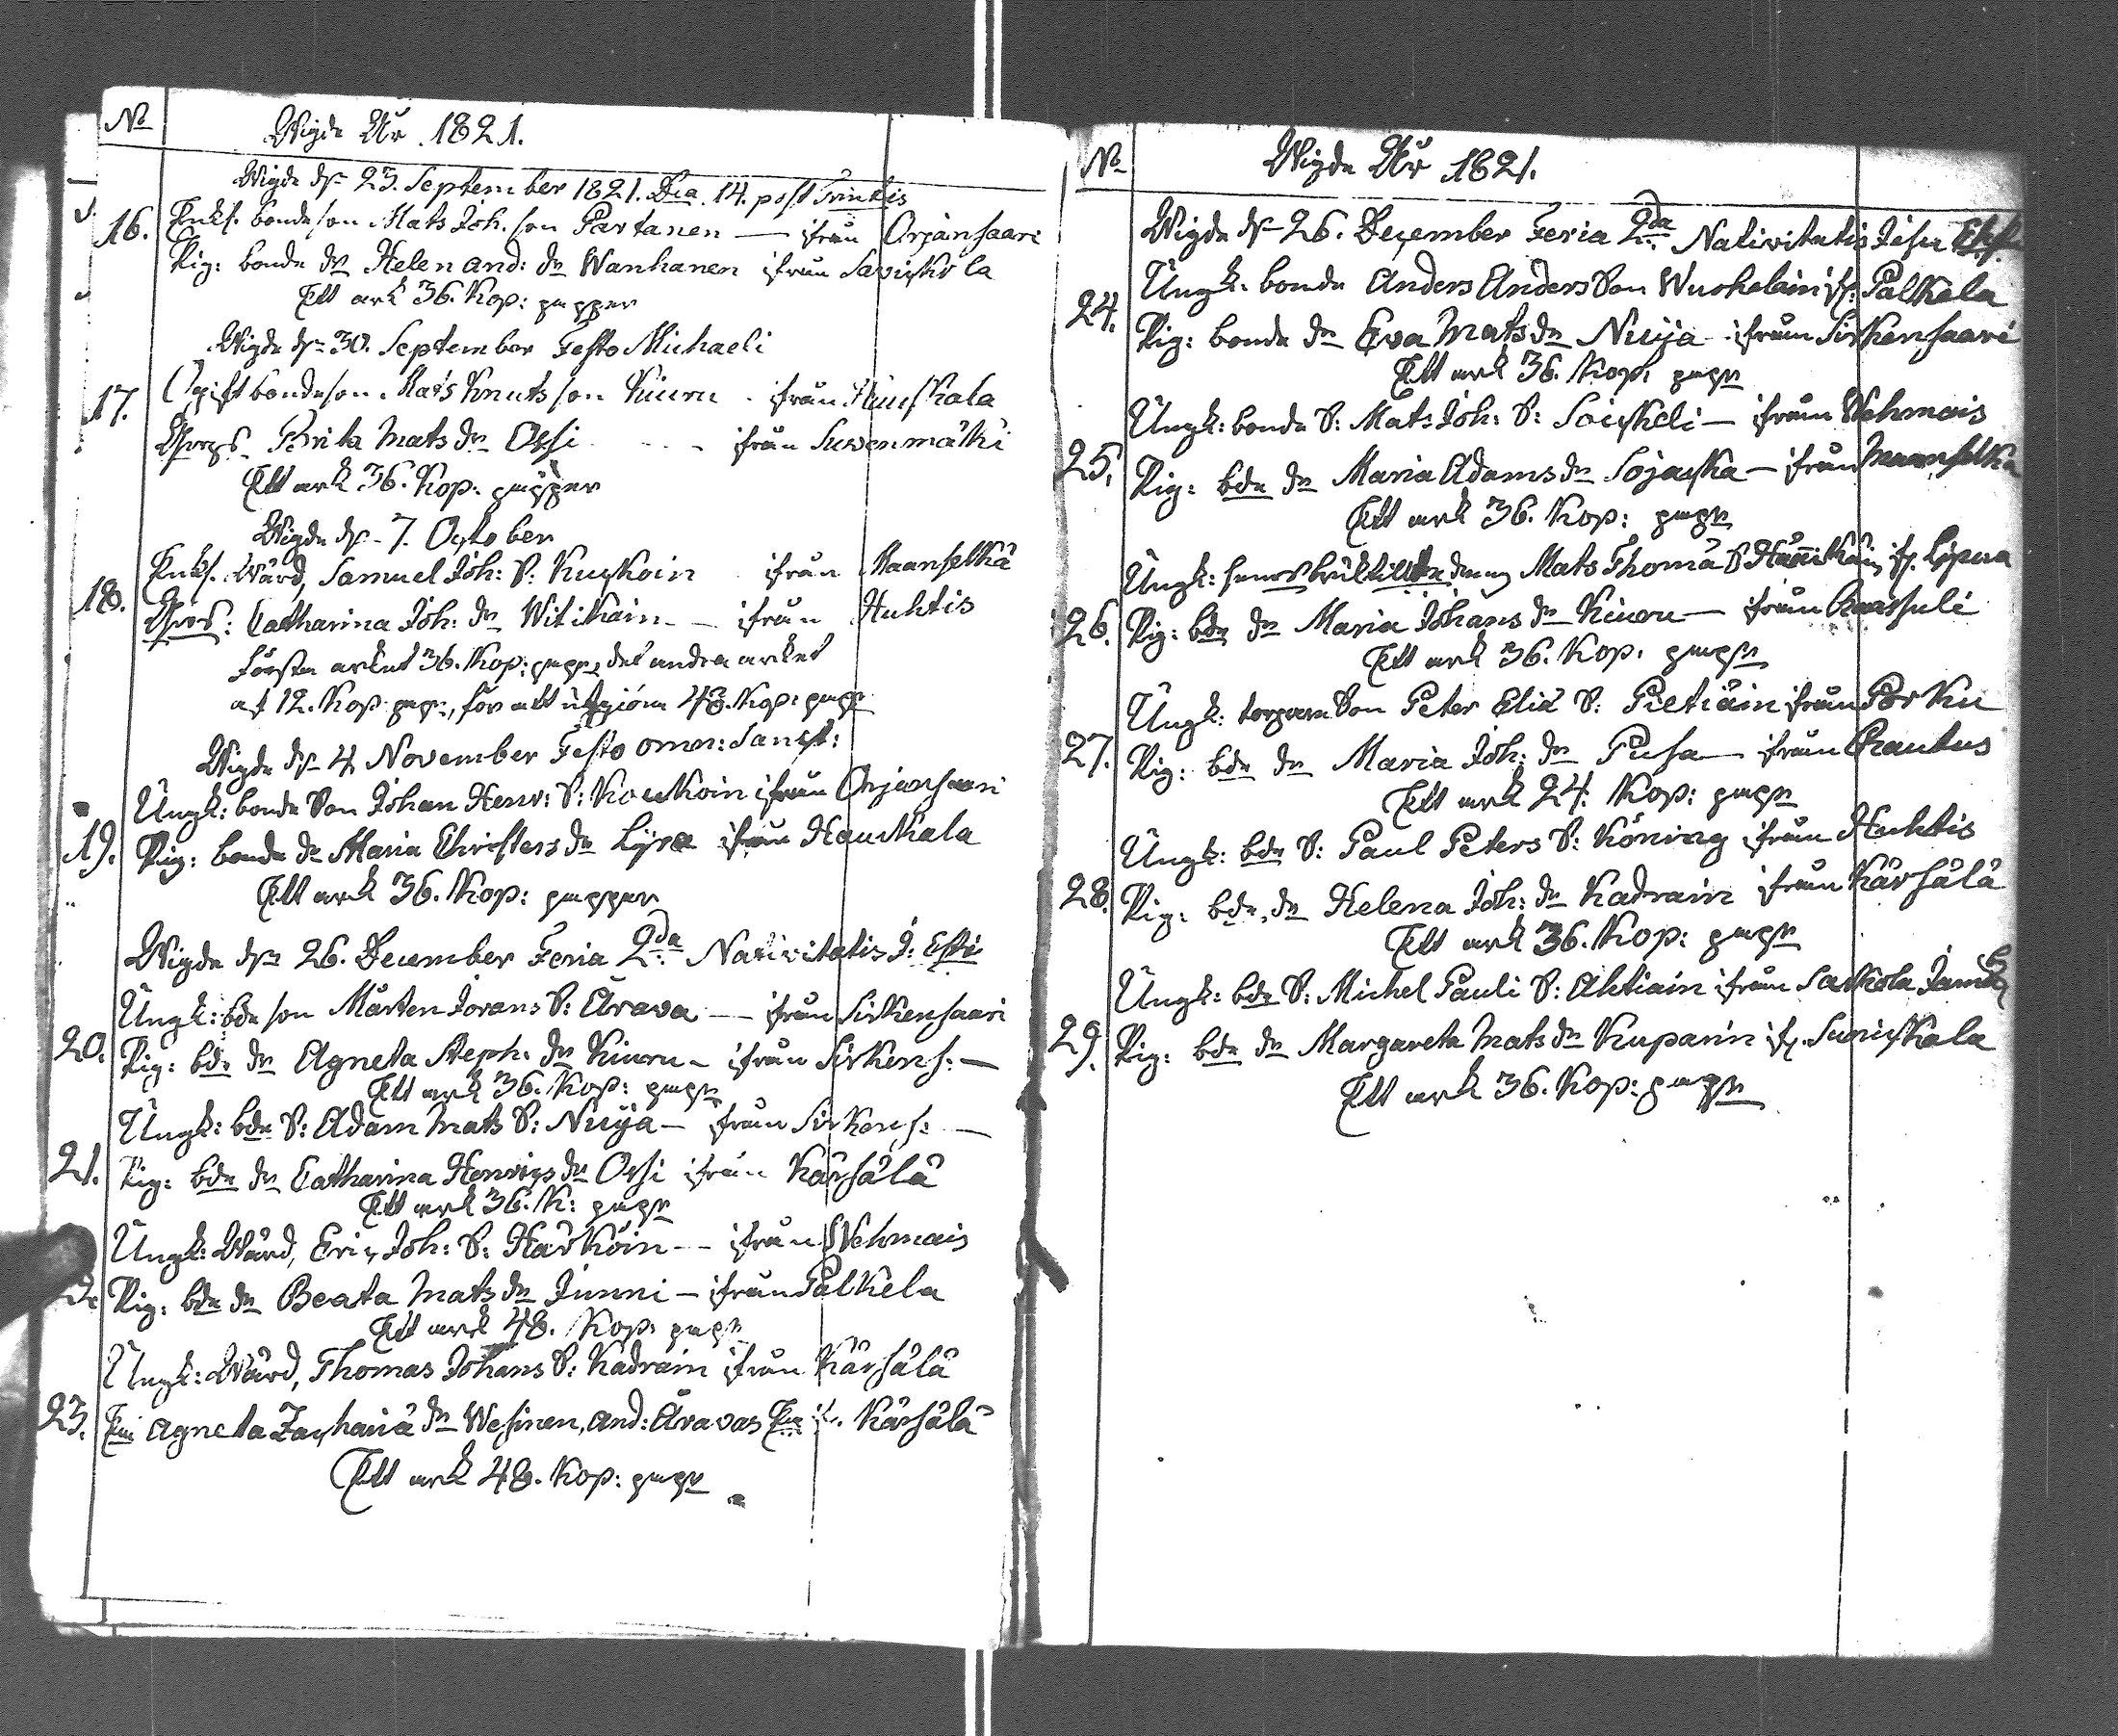 No
Wigde År 1821.
Wigde dn 23. September 1821. Dca. 14. post Trinitis
16. Enkl. bondeson Mats Joh. son Partanen — ifrån Orjansaari
Pig: bonde dr Helen And: dr Wanhanen ifrån Saviskola
Ett ark 36. Kop: papper
Wigde dn 30. September Festo Michaeli
17. Ogift bondeson Mats Knutsson Kiuru - ifrån Hauskala
Brita Mats dr Ossi - - - ifrån Suvenmäki
Ett ark 36. Kop: papper
Wigde dn 7. October
18. Enkl. Wärd, Samuel Joh: S: Kuckoin ifrån Maanselkä
Catharina Joh: dr Witikain - - ifrån Huhtis
Första arket 36. Kop: pap:, det andra arket
af 12. Kop pap:, för att utgiöra 48. Kop: papr
Wigde dn 4 November Festo omn: Sanct:
Ungk: bonde Son Johan Henr: S: Koukoin ifrån Orjansaari
19. Pig: bonde dr Maria Christers dr Lyra ifrån Hauskala
Ett ark 36. Kop: papper
Wigde dn 26. December Feria 2da Nativitatis J:
Ungk: bde son Mårten Jorans S: Ärava — ifrån Sirkensaari
20. Pig: bde dr Agneta Steph: dr Kiuru - ifrån Sirkens: —
Ett ark 36. Kop: papr
Ungk: bde S: Adam Mats S: Nuija - ifrån Sirkens: —
21. Pig: bde dr Catharina Henrics dr Ossi ifrån Kärsälä
Ett ark 36. K: papr
Ungk: Wärd, Eric Joh: S: Härköin - - ifrån Wehmais
Pig: bde dr Beata Mats dr Junni - ifrån Palkela
Ett ark 48. Kop: papr
Ungk: Wärd, Thomas Johans S: Kadrain ifrån Kärsälä
23. Enk Agneta Zachariä dr Wesinen, And: Äravas Enk if. Kärsälä
Ett ark 48. Kop: papr
No
Wigde År 1821.
Wigde dn 26. December Feria 2da Nativitatis Jesu
Ungk: bonde Anders Anders Son Wuohelain if: Palkela
24. Pig: bonde dr Eva Mats dr Nuija - ifrån Sirkensaari
Ett ark 36. Kop: papr
Ungk: bonde S: Mat: Joh: S: Souskeli — ifrån Wehmais
25. Pig: bde dr Maria Adams dr Sojacka — ifrån Maanselkä
Ett ark 36. Kop: papr
Ungk: Mats Thomä S Hännikäin, if. Lipura
26. Pig: bde dr Maria Johans dr Kiuru — ifrån Raasuli
Ett ark 36. Kop. papr
Ungk: torpare Son Peter Eliä S: Pietiäin ifrån Porku
27. Pig: bde dr Maria Joh: dr Pusa — ifrån Rautus
Ett ark 24. Kop: papr
Ungk: bde S: Paul Peters S: Köning ifrån Huhtis
28. Pig: bde dr Helena Joh: dr Kadrain ifrån Kärsälä
Ett ark 36. Kop: papr
Ungk: bde S: Michel Pauli S: Ahtiain ifrån Sakkola
29. Pig: bde dr Margareta Mats dr Kuparin if. Suniskala
Ett ark 36. Kop: papr